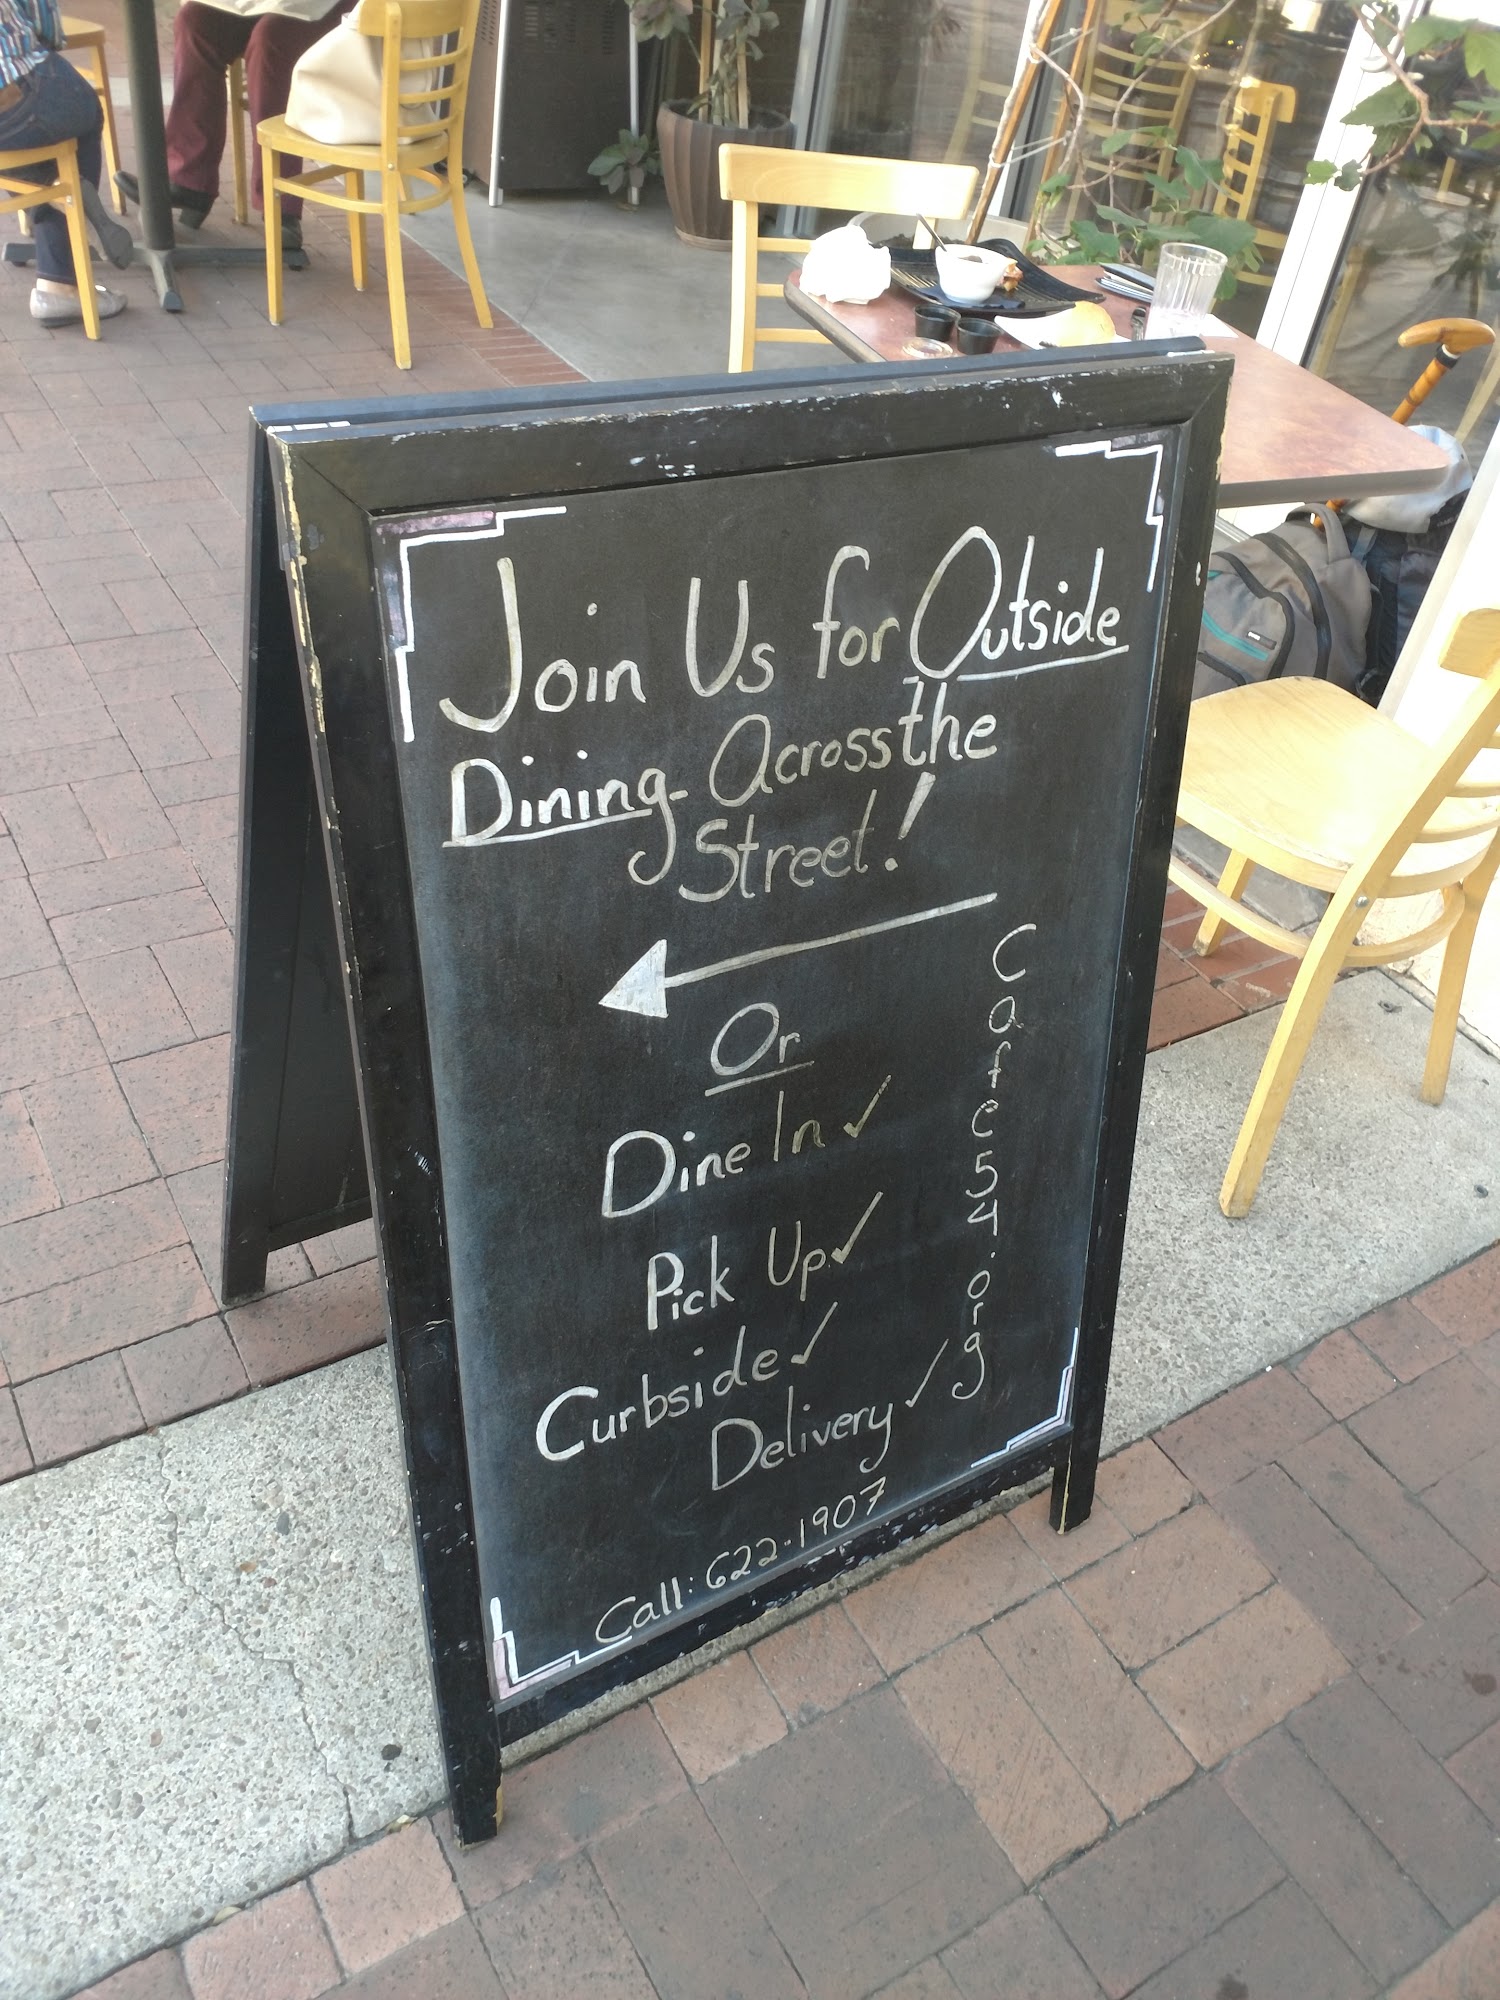 Join Us for Outside
Dining Across the
Street!
Or
Dine In ✓
Pick Up ✓
Curbside ✓
Delivery ✓
Call: 622-1907
Cafe54.org